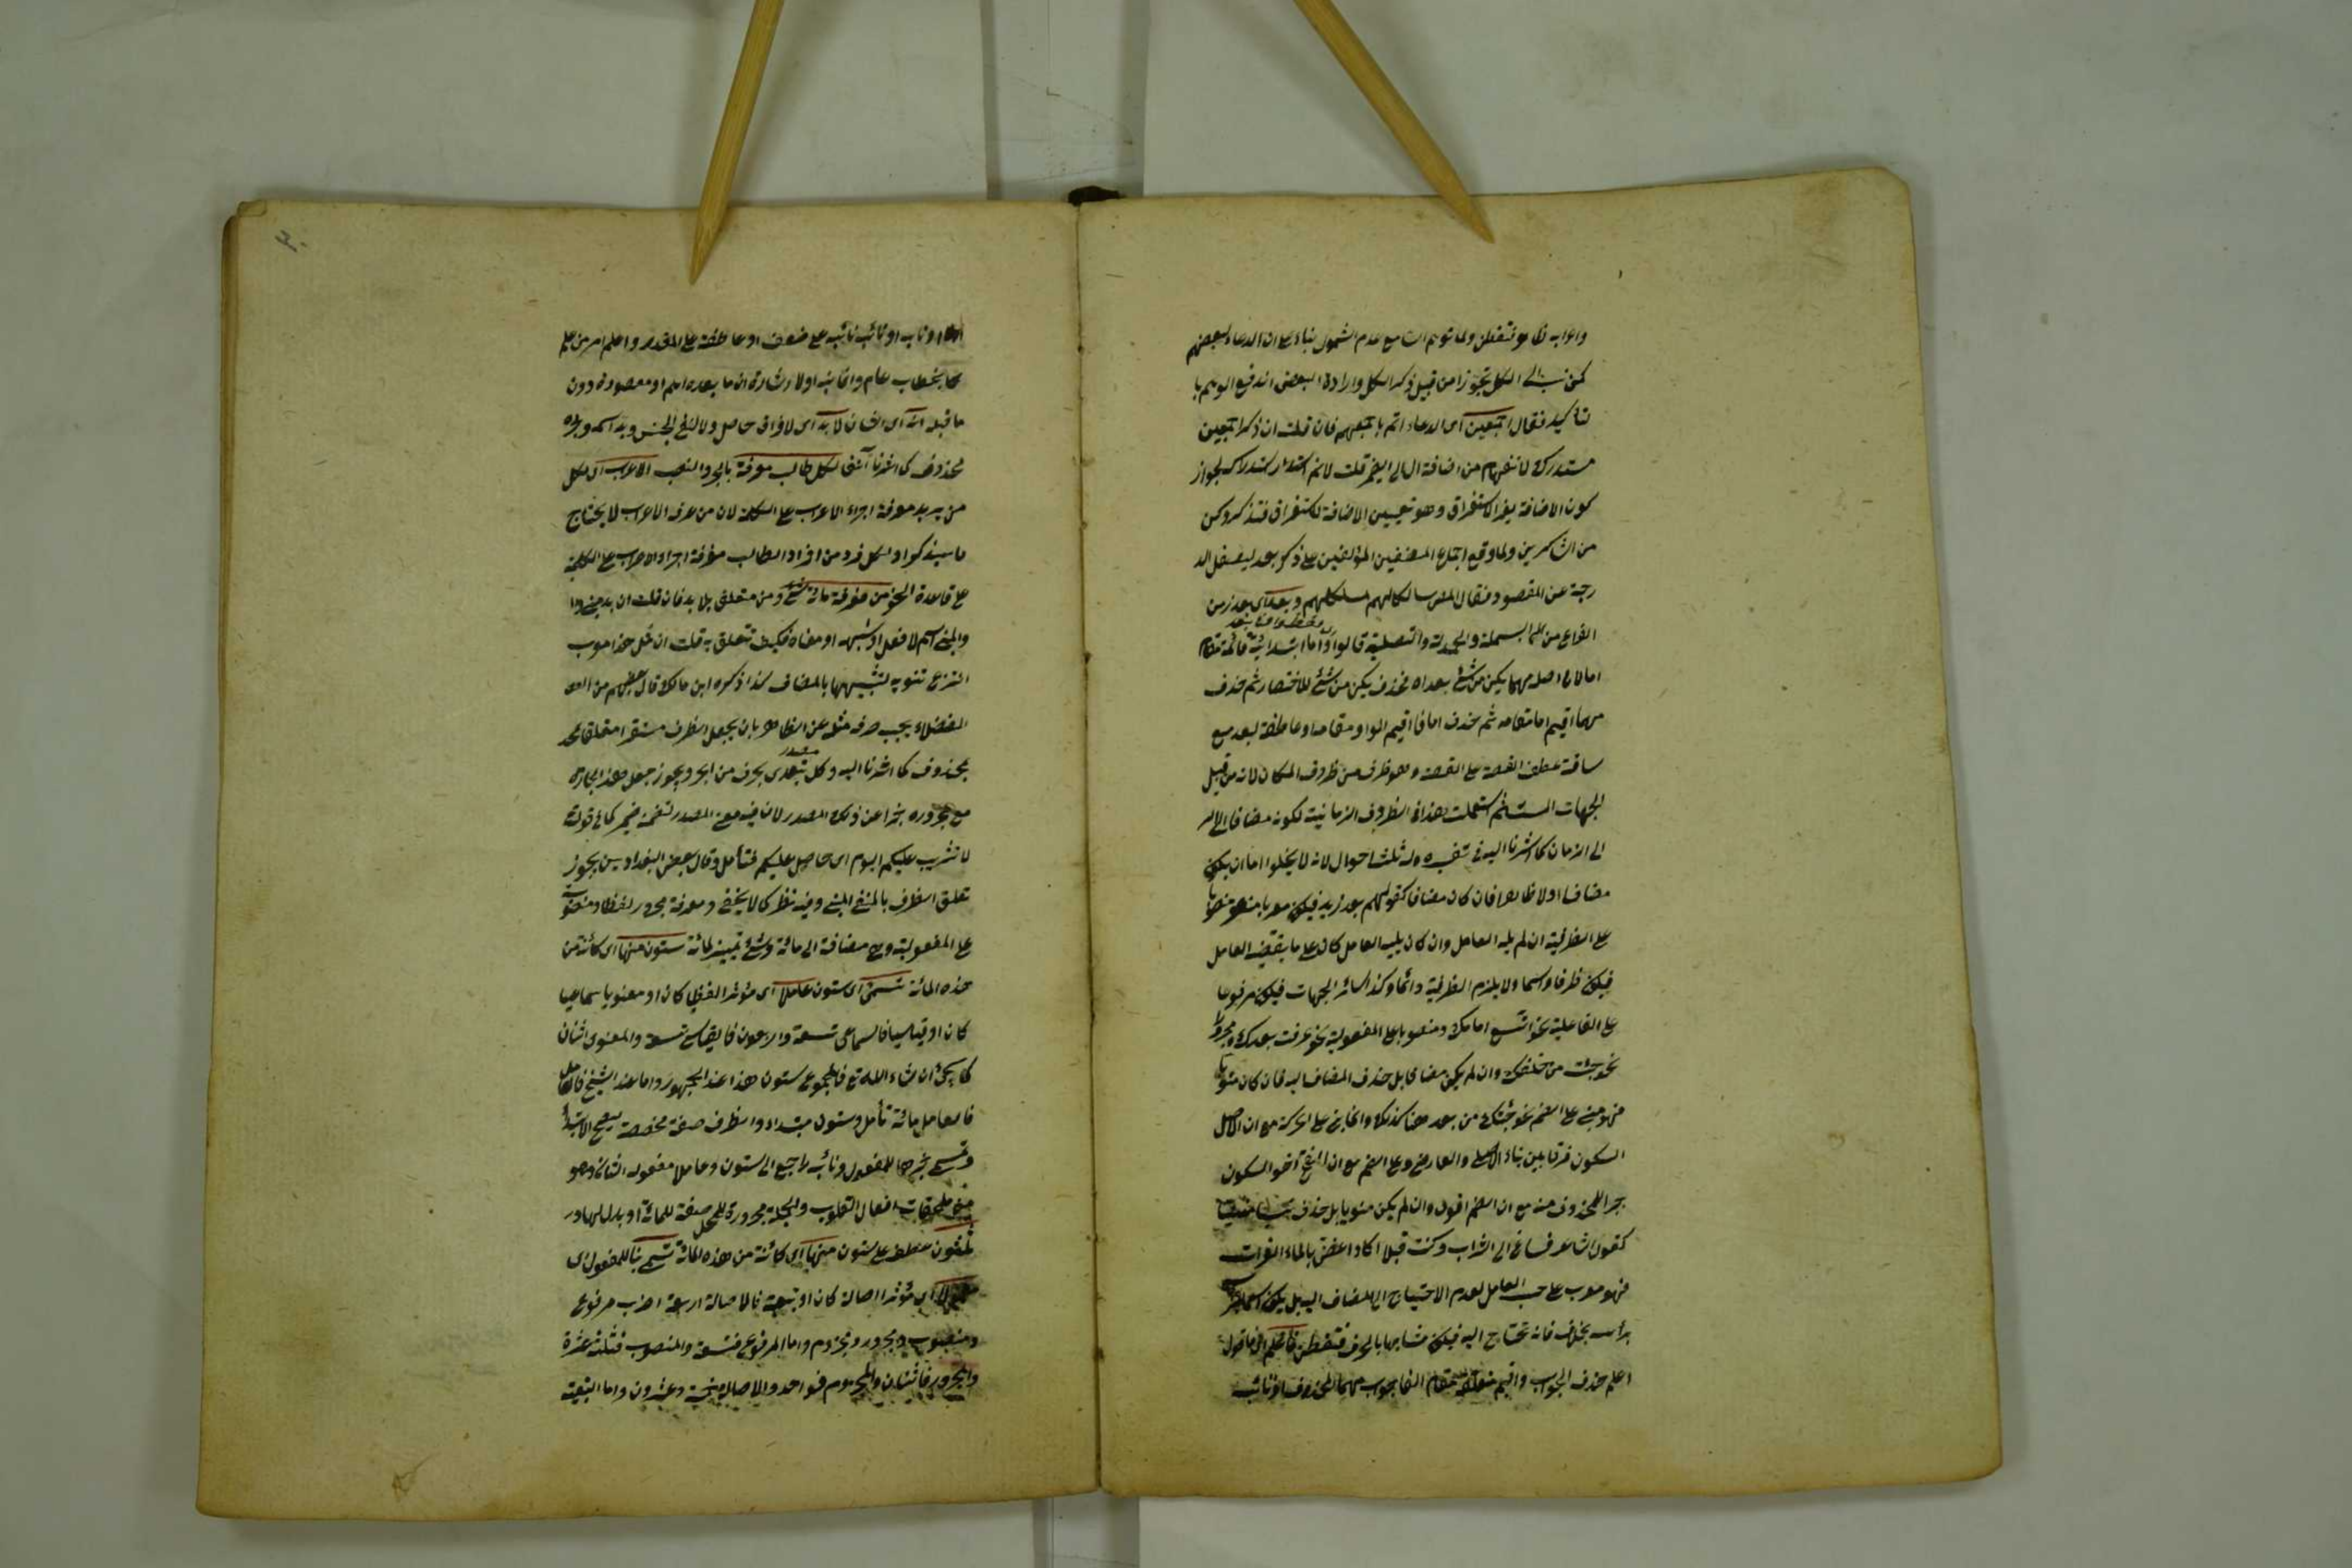 واعرابه ظاهر فتفطن ولما توهم ان مع عدم الشمول بناء على ان الدعاء لبعضهم
الى الكل تجوزا من قبيل ذكر الكل وارادة البعض اندفع الوهم با
لتأكيد فقال اجمعين اى الدعاء اتم باجمعهم فان قلت ان ذكر اجمعين
مستدرك لانفهام من اضافة الال الى الضمير قلت لانم استدراك لجواز
كون الاضافة بغير الاستغراق وهو تعيين الاضافة لاستغراق فتذكر وكن
من الشاكرين ولما وقع اجماع المصنفين المؤلفين على ذكر بعد
عن المقصود فقال المص سالكا لهم مسلكهم وبعد اى بعد زمن
الفراغ من البسملة والحمدلة والتصلية قالوا واما ابتدائية قائمة مقام
اما لان اصله مهما يكن من شئ بعد اه فحذف يكن من شئ للاختصار ثم حذف
مهما اقيم اما مقامه ثم حذف اما فاقيم الواو مقامه او عاطفة لبعد مع
ساقة عطف القصة على القصة وهو ظرف من ظروف المكان لانه من قبيل
الجهات الست ثم استعملت هذه الظروف الزمانية لكونه مضافا
الى الزمان كما اشرنا اليه فى تفسيره وله ثلث احوال لانه لا يخلوا اما ان يكون
مضافا اولا فان كان مضافا كقولهم بعد زيد فيكون معربا منصوبا
على الظرفية ان لم يليه العامل وان كان يليه العامل كان على ما يقتضيه العامل
فيكون ظرفا واسما ولا يلزم الظرفية دائما وكذا سائر الجهات فيكون مرفوعا
على الفاعلية نحو اتسع امامك ومنصوبا على المفعولية نحو عرفت بعدك ومجرورا
نحو جئت من خلفك وان لم يكن مضافا بل حذف المضاف اليه فان كان منويا
فهو مبنى على الضم نحو جئتك من بعد هنا كذلك وانما بنى على الحركة مع ان الاصل
السكون فرقا بين بناء الاصلى والعارض وعلى الضم مع ان الفتح اخو السكون
جبرا للمحذوف منه مع ان الضم اقوى وان لم يكن منويا بل حذف نسيا منسيا
كقول الشاعر فساغ الى الشراب وكنت قبلا اكاد اغص بالماء الفرات
فهو معرب على حسب العامل لعدم الاحتياج الى المضاف اليه بل يكون
برأسه بخلاف فانه تحتاج اليه فيكون مشابها بالحرف فتفطن فاعلم
اعلم حذف الجواب واقيم مقام الفا جواب مهما المحذوف او نائب
او نائب نائبه على ضعف او عاطفة على المقدر واعلم امر من علم
خطاب عام وانما اولا اشارة ان ما بعده اهم او مقصودة دون
ما قبله انه اى الشان لا بد اى لا فراق حاصل ولا لنفى الجنس وبد اسمه وخبره
محذوف كما اشرنا آنفا لكل طالب معرفة بالجر والنصب الاعراب اى لكل
من يريد معرفة اجراء الاعراب على الكلمة لان من عرف الاعراب لا يحتاج
ما سيذكر او لكل فرد من افراد الطالب معرفة اجراء الاعراب على الكلمة
على قاعدة النحو من معرفة مائة شئ ومن متعلق بلا بد فان قلت ان بد
والمبنى اسم لا فعل او شبهه او معناه فكيف تتعلق به قلت ان مثل هذا معرب
انتزع تنوينه لتشبيهها بالمضاف كذا ذكره ابن مالك قال بعضهم من
الفضلاء يجب صرف مثله عن الظاهر بان يجعل الظرف مستقرا متعلقا
بمحذوف كما اشرنا اليه وكل مصدر تتعدى بحرف من الجر ويجوز جعل هذا الجار
مع مجروره خبرا عن ذلك المصدر لان فيه معنى المصدر كما فى قوله
لا تثريب عليكم اليوم اى حاصل عليكم فتأمل وقال بعض البغداديين يجوز
تعلق الظرف بالمنفى المبنى وفيه نظر كما لا يخفى ومعرفة مجرور لفظا ومنصوب
على المفعولية وهى مضافة الى مائة وشئ تمييز لمائة ستون منها اى كائنة من
هذه المائة تسمى اى ستون عاملا اى مؤثرا لفظيا كان او معنويا سماعيا
كان او قياسيا فالسماعى تسعة واربعون فالقياسى تسعة والمعنوى اثنان
كما يجئ ان شاء الله تع فالمجموع ستون هذا عند الجمهور واما عند الشيخ
فالعامل مائة تأمل وستون مبتداء والظرف صفة مخصصة يصح الابتداء
وتسمى خبرها للمفعول ونائبه راجع الى ستون وعاملا مفعوله الثانى وهو
من ملحقات افعال القلوب والجملة مجرورة المحل صفة للمائة او بدل
ثلثون عطف على ستون منها اى كائنة من هذه المائة تسمى بناء للمفعول اى
معمولا اى مؤثرا اصالة كان او تبعية فالاصالة اربعة اضرب مرفوع
ومنصوب ومجرور ومجزوم واما المرفوع فتسعة والمنصوب فثلثة عشرة
والمجرور فاثنان والمجزوم فواحد والاصالة خمسة وعشرون واما التبعية